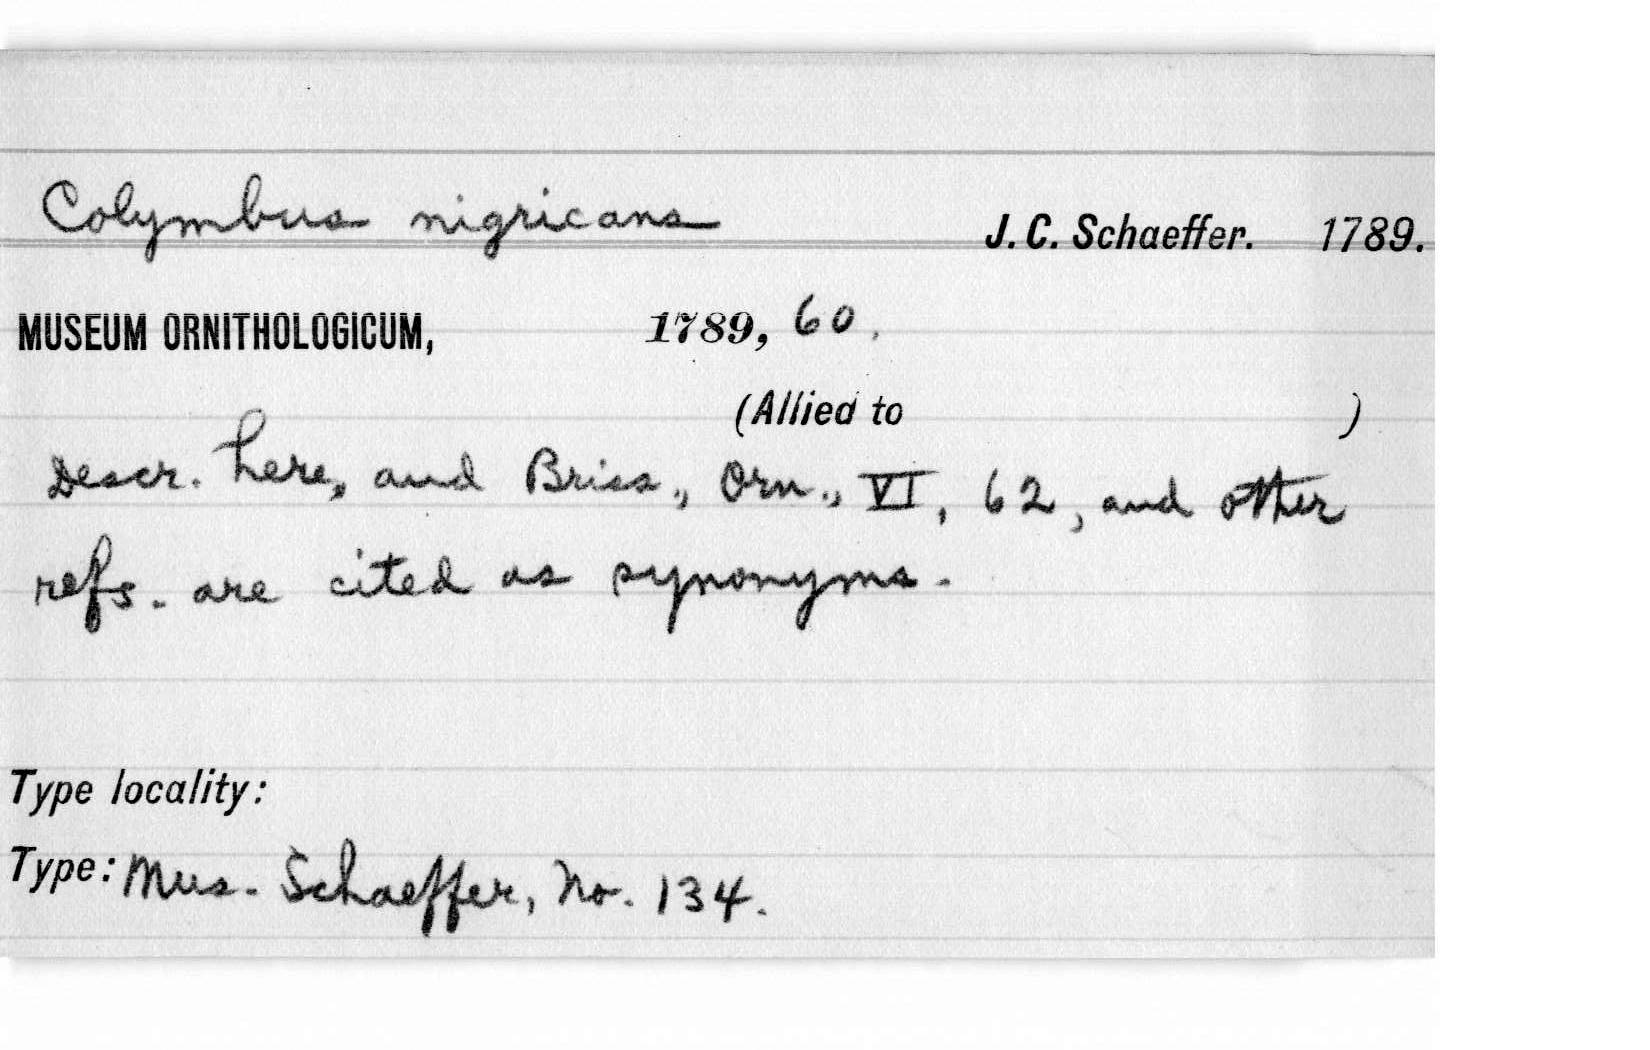 Colymbus nigricans J. C. Schaeffer. 1789.
MUSEUM ORNITHOLOGICUM, 1789, 60.
(Allied to )
Descr. here, and Briss., Orn., VI, 62, and other
refs. are cited as synonyms.
Type locality:
Type: Mus. Schaeffer, No. 134.